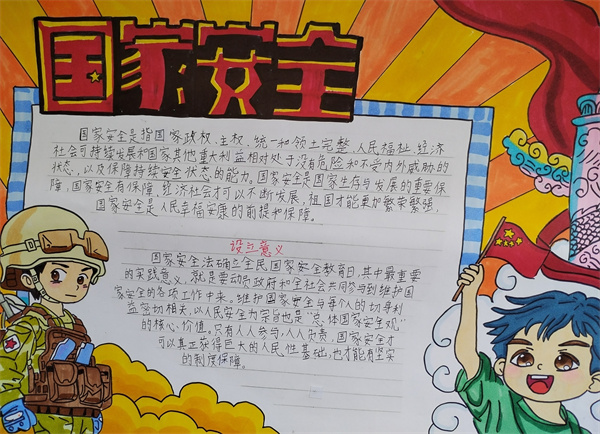 国家安全
国家安全是指国家政权、主权、统一和领土完整、人民福祉、经济
社会可持续发展和国家其他重大利益相对处于没有危险和不受内外威胁的
状态，以及保障持续安全状态的能力。国家安全是国家生存与发展的重要保
障，国家安全有保障，经济社会才可以不断发展，祖国才能更加繁荣繁强，
国家安全是人民幸福安康的前提和保障。
设立意义
国家安全法确立全民国家安全教育日，其中最重要
的实践意义，就是要动员政府和全社会共同参与到维护国
家安全的各项工作中来。维护国家安全与每个人的切身利
益密切相关，以人民安全为宗旨也是“总体国家安全观”
的核心价值。只有人人参与，人人负责，国家安全才
可以真正获得巨大的人民性基础，也才能有坚实
的制度保障。